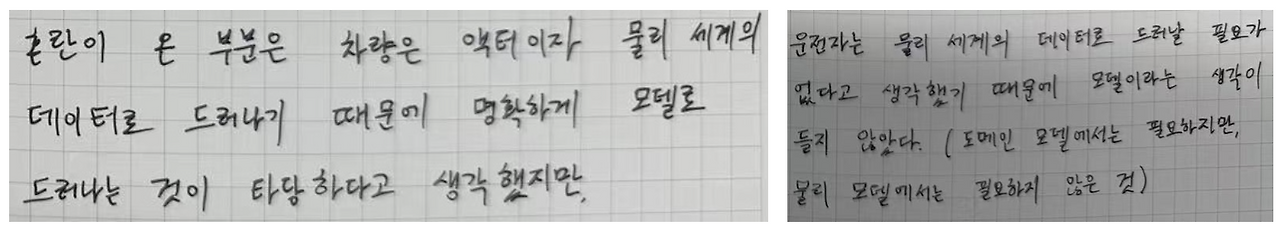 혼란이 온 부분은 차량은 액터이자 물리 세계의
데이터로 드러나기 때문에 명확하게 모델로
드러나는 것이 타당하다고 생각했지만,
운전자는 물리 세계의 데이터로 드러날 필요가
없다고 생각했기 때문에 모델이라는 생각이
들지 않았다. (도메인 모델에서는 필요하지만,
물리 모델에서는 필요하지 않은 것)